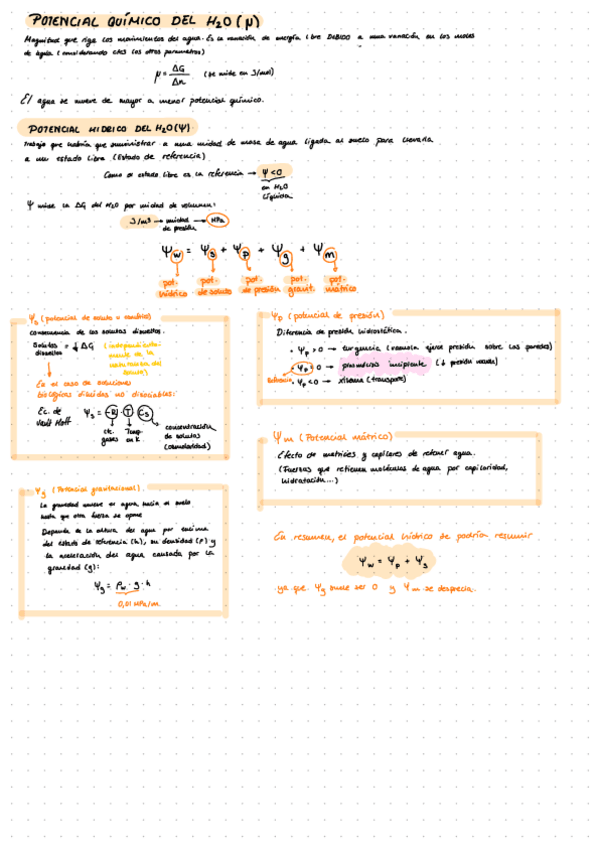 POTENCIAL QUÍMICO DEL H2O (μ)
Magnitud que rige los movimientos del agua. Es la variación de energía libre DEBIDO a una variación en los moles
de agua (considerando ctes los otros parámetros)
μ = ΔG/Δn (se mide en J/mol)
El agua se mueve de mayor a menor potencial químico.
POTENCIAL HIDRICO DEL H2O (Ψ)
Trabajo que habría que suministrar a una unidad de masa de agua ligada al suelo para llevarla
a un estado libre (Estado de referencia)
Como el estado libre es la referencia → Ψ<0
en H2O
líquida
Ψ mide la ΔG del H2O por unidad de volumen:
J/m3 → unidad de presión → MPa
Ψw = Ψs + Ψp + Ψg + Ψm
pot. hídrico pot. de soluto pot. de presión pot. gravit. pot. mátrico
Ψs (potencial de soluto u osmótico)
consecuencia de los solutos disueltos.
Solutos disueltos = ↓ ΔG (independientemente de la naturaleza del soluto)
En el caso de soluciones
biológicas diluidas no disociables:
Ec. de Van't Hoff Ψs = -R · T · Cs
cte. gases
Temp. en K
concentración
de solutos
(osmolaridad)
Ψp (potencial de presión)
Diferencia de presión hidrostática.
• Ψp > 0 → turgencia (vacuola ejerce presión sobre las paredes)
• Ψp = 0 → plasmólisis incipiente (↓ presión vacuola)
• Ψp < 0 → xilema (transporte)
Ψm (Potencial mátrico)
Efecto de matrices y capilares de retener agua.
(Fuerzas que retienen moléculas de agua por capilaridad,
hidratación...)
Ψg (Potencial gravitacional)
La gravedad mueve el agua hacia el suelo
hasta que otra fuerza se opone
Depende de la altura del agua por encima
del estado de referencia (h), su densidad (ρ) y
la aceleración del agua causada por la
gravedad (g):
Ψg = ρw · g · h
0,01 MPa/m
En resumen, el potencial hídrico se podría resumir
Ψw = Ψp + Ψs
ya que Ψg suele ser 0 y Ψm se desprecia.